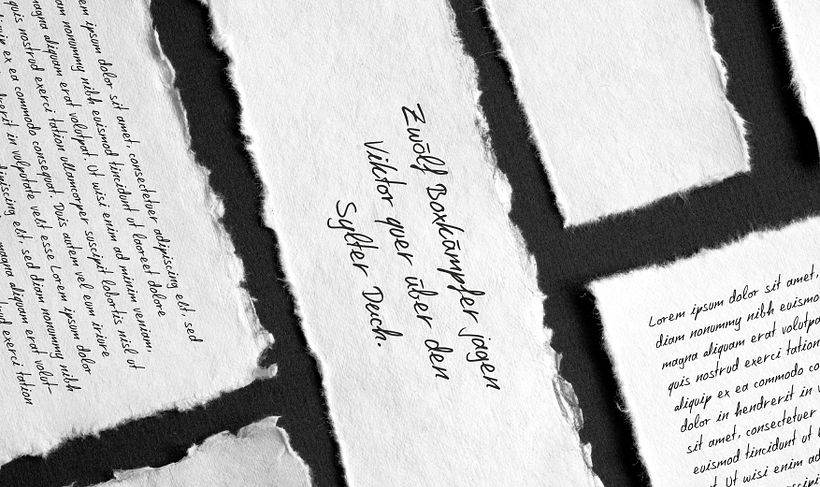 ipsum dolor sit amet, consectetuer adipiscing elit, sed
nonummy nibh euismod tincidunt ut laoreet dolore
magna aliquam erat volutpat. Ut wisi enim ad minim veniam,
quis nostrud exerci tation ullamcorper suscipit lobortis nisl ut
ex ea commodo consequat. Duis autem vel eum iriure
in vulputate velit esse Lorem ipsum dolor
elit, sed diam nonummy nibh
magna aliquam erat volut-
exerci tation
Zwölf Boxkämpfer jagen
Viktor quer über den
Sylter Deich.
Lorem ipsum dolor sit amet,
diam nonummy nibh euismo
magna aliquam erat volutpa
quis nostrud exerci tation
aliquip ex ea commodo co
dolor in hendrerit in v
sit amet, consectetuer
euismod tincidunt ut l
Ut wisi enim ad